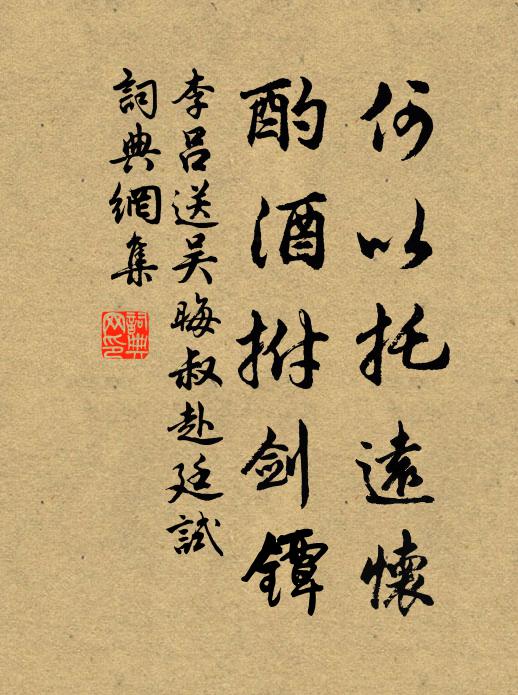 何以托遠懷
酌酒拊劍鐔
李呂送吴晦叔赴廷試
詞典網集
詞典
网印